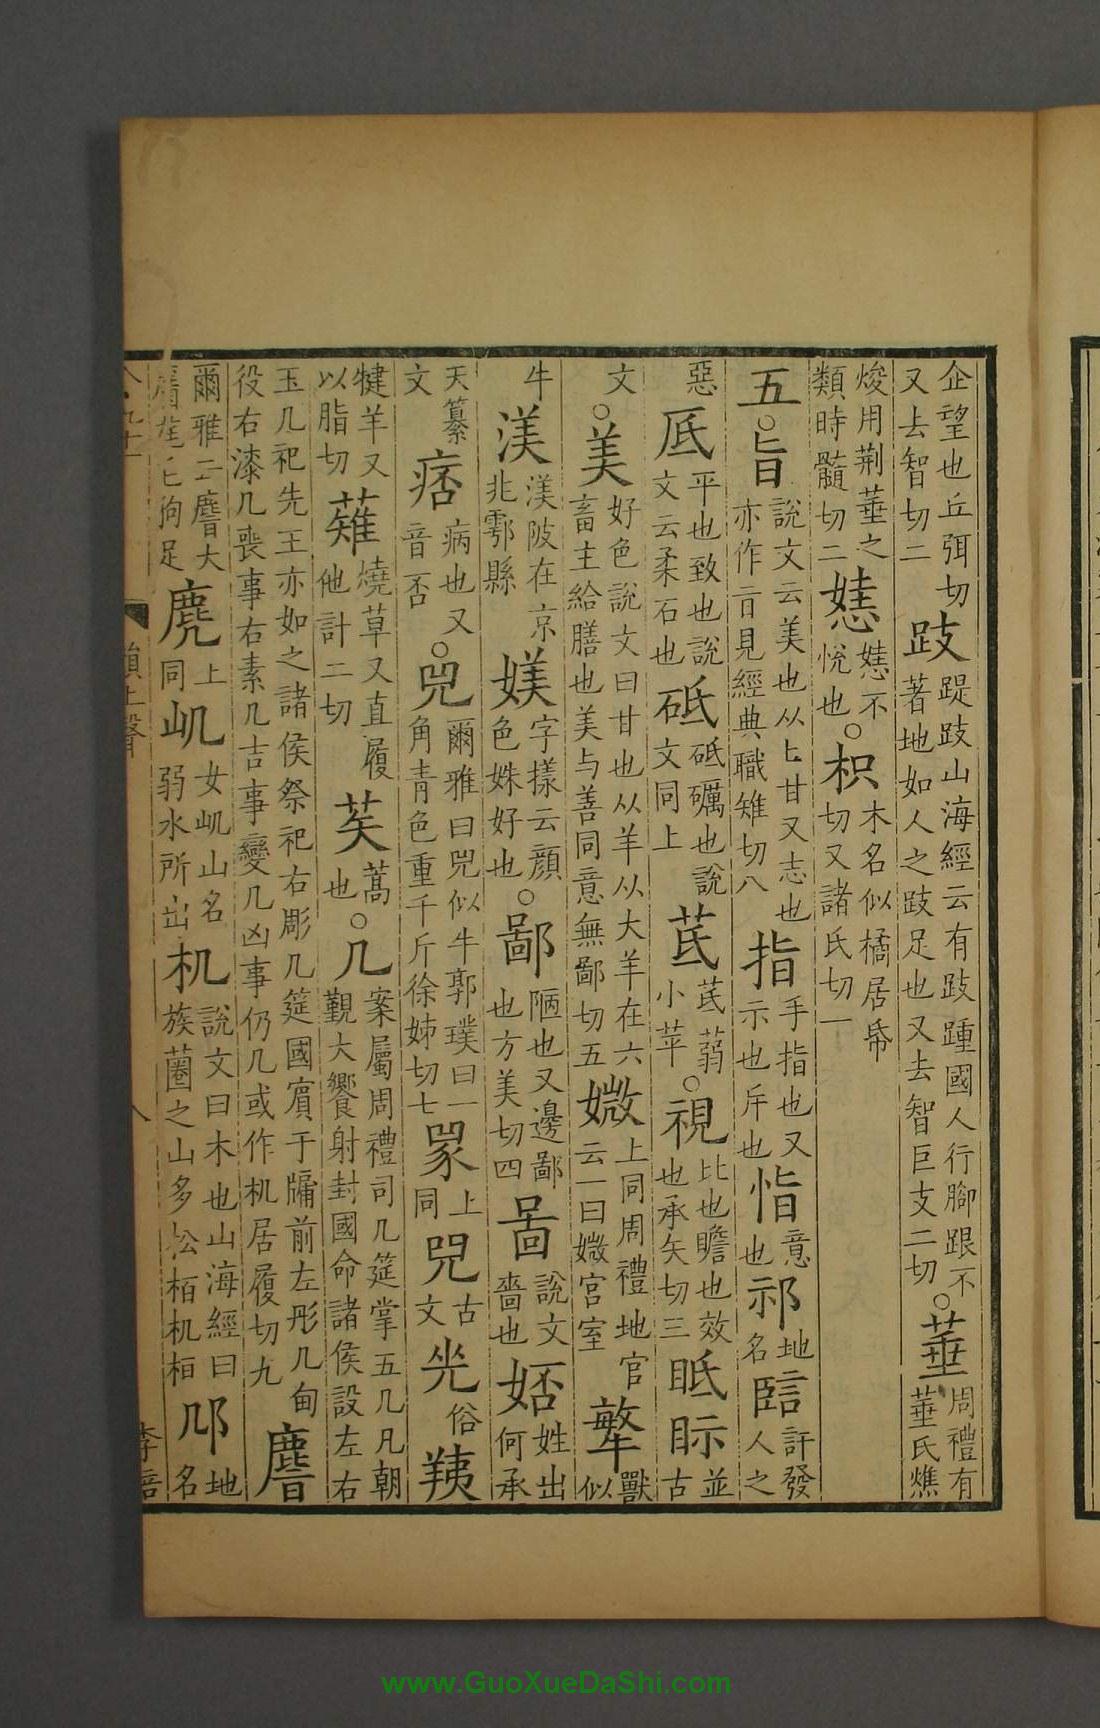 企望也丘弭切又去智切二跂踶跂山海經云有跂踵國人行腳跟不著地如人之跂足也又去智巨支二切○菙周禮有菙氏燋
焌用荆菙之類時髓切二㛃㛃不悅也○枳木名似橘居帋切又諸氏切一
五○旨說文云美也从匕甘又志也亦作㫖見經典職雉切八指手指也又示也斥也恉意也祁地名𦧇訐發人之
惡厎平也致也說文云柔石也砥砥礪也說文同上茋茋蒻小苹○視比也瞻也效也承矢切三眡眎並古
文○美好色說文曰甘也从羊从大羊在六畜主給膳也美与善同意無鄙切五媺上同周禮地官云一曰媺宮室獸似
牛渼渼陂在京兆鄠縣媄字樣云顏色姝好也○鄙陋也又邊鄙也方美切四啚說文嗇也娝姓出何承
天纂文痞病也又音否○兕爾雅曰兕似牛郭璞曰一角青色重千斤徐姊切七𤉡上同兕古文光俗羠
犍羊又以脂切薙燒草又直履他計二切苵蒿也○几案屬周禮司几筵掌五几凡朝覲大饗射封國命諸侯設左右
玉几祀先王亦如之諸侯祭祀右彫几筵國賓于牖前左彤几甸役右漆几喪事右素几吉事變几凶事仍几或作机居履切九麔
爾雅云麔大麕旄毛狗足麂上同屼女屼山名弱水所出机說文曰木也山海經曰族蓲之山多松栢机桓邔地名
韻上聲
八
李
www.GuoXueDaShi.com